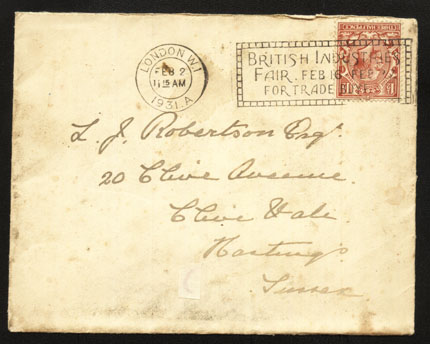 LONDON.W.1
FEB 2
11 15 AM
1931.A
BRITISH INDUSTRIES
FAIR. FEB 16 FEB 27
FOR TRADE BUYERS
L. J. Robertson Esqr.
20 Clive Avenue.
Clive Vale.
Hastings
Sussex